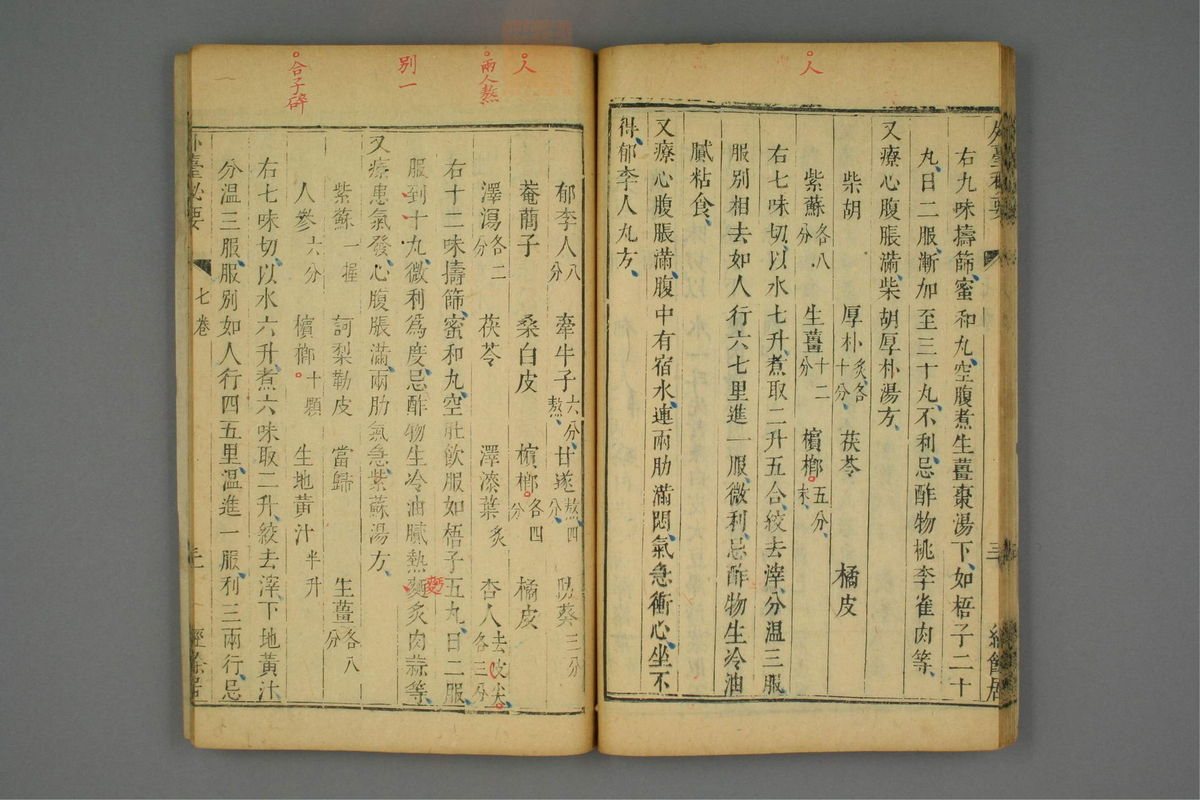 人
外臺秘要
經餘居
右九味擣篩蜜和丸空腹煮生薑棗湯下如梧子二十
丸日二服漸加至三十丸不利忌酢物桃李雀肉等
又療心腹脹滿柴胡厚朴湯方
柴胡 厚朴炙各十分 茯苓 橘皮
紫蘇各八分 生薑十二分 檳榔五分末
右七味切以水七升煮取二升五合絞去滓分溫三服
服別相去如人行六七里進一服微利忌酢物生冷油
膩粘食
又療心腹脹滿腹中有宿水連兩肋滿悶氣急衝心坐不
得郁李人丸方
人
兩人熬
別一
合子碎
郁李人八分 牽牛子六分熬 甘遂熬四分 防葵三分
菴藺子 桑白皮 檳榔各四分 橘皮
澤瀉各二分 茯苓 澤漆葉炙 杏人去皮尖各三分
右十二味擣篩蜜和丸空肚飲服如梧子五丸日二服
服到十丸微利為度忌酢物生冷油膩熱麵炙肉蒜等
又療患氣發心腹脹滿兩肋氣急紫蘇湯方
紫蘇一握 訶梨勒皮 當歸 生薑各八分
人參六分 檳榔十顆 生地黃汁半升
右七味切以水六升煮六味取二升絞去滓下地黃汁
分溫三服服別如人行四五里溫進一服利三兩行忌
外臺秘要 七卷 經餘居